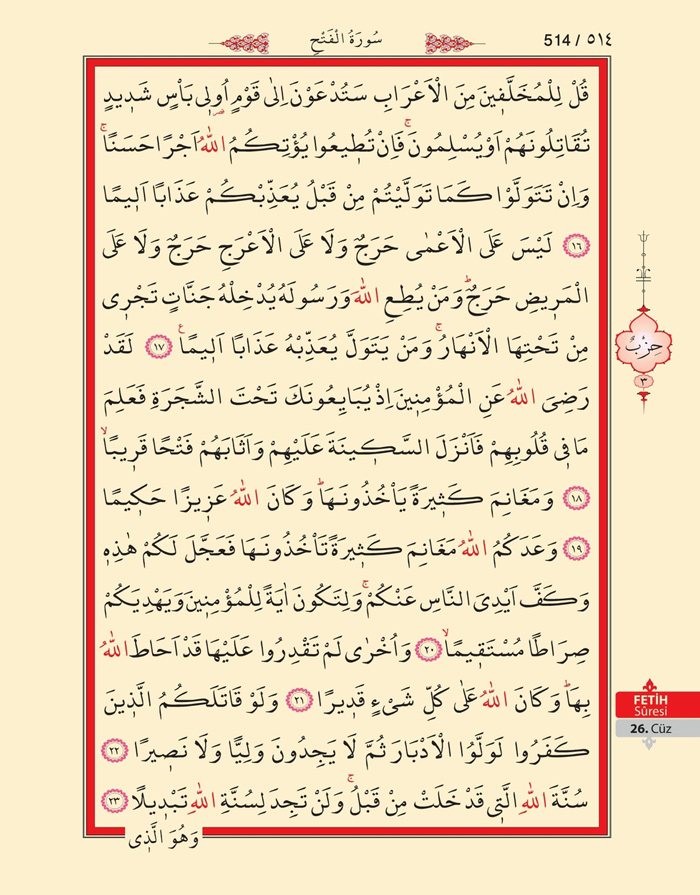 514 / ٥١٤
سُورَةُ الْفَتْحِ
قُلْ لِلْمُخَلَّفٖينَ مِنَ الْاَعْرَابِ سَتُدْعَوْنَ اِلٰى قَوْمٍ اُولٖى بَأْسٍ شَدٖيدٍ
تُقَاتِلُونَهُمْ اَوْ يُسْلِمُونَۚ فَاِنْ تُطٖيعُوا يُؤْتِكُمُ اللّٰهُ اَجْرًا حَسَنًاۚ
وَاِنْ تَتَوَلَّوْا كَمَا تَوَلَّيْتُمْ مِنْ قَبْلُ يُعَذِّبْكُمْ عَذَابًا اَلٖيمًا
١٦ لَيْسَ عَلَى الْاَعْمٰى حَرَجٌ وَلَا عَلَى الْاَعْرَجِ حَرَجٌ وَلَا عَلَى
الْمَرٖيضِ حَرَجٌؕ وَمَنْ يُطِعِ اللّٰهَ وَرَسُولَهُ يُدْخِلْهُ جَنَّاتٍ تَجْرٖى
مِنْ تَحْتِهَا الْاَنْهَارُۚ وَمَنْ يَتَوَلَّ يُعَذِّبْهُ عَذَابًا اَلٖيمًاࣖ ١٧ لَقَدْ
رَضِىَ اللّٰهُ عَنِ الْمُؤْمِنٖينَ اِذْ يُبَايِعُونَكَ تَحْتَ الشَّجَرَةِ فَعَلِمَ
مَا فٖى قُلُوبِهِمْ فَاَنْزَلَ السَّكٖينَةَ عَلَيْهِمْ وَاَثَابَهُمْ فَتْحًا قَرٖيبًاۙ
١٨ وَمَغَانِمَ كَثٖيرَةً يَأْخُذُونَهَاؕ وَكَانَ اللّٰهُ عَزٖيزًا حَكٖيمًا
١٩ وَعَدَكُمُ اللّٰهُ مَغَانِمَ كَثٖيرَةً تَأْخُذُونَهَا فَعَجَّلَ لَكُمْ هٰذِهٖ
وَكَفَّ اَيْدِىَ النَّاسِ عَنْكُمْۚ وَلِتَكُونَ اٰيَةً لِلْمُؤْمِنٖينَ وَيَهْدِيَكُمْ
صِرَاطًا مُسْتَقٖيمًاۙ ٢٠ وَاُخْرٰى لَمْ تَقْدِرُوا عَلَيْهَا قَدْ اَحَاطَ اللّٰهُ
بِهَاؕ وَكَانَ اللّٰهُ عَلٰى كُلِّ شَیْءٍ قَدٖيرًا ٢١ وَلَوْ قَاتَلَكُمُ الَّذٖينَ
كَفَرُوا لَوَلَّوُا الْاَدْبَارَ ثُمَّ لَا يَجِدُونَ وَلِيًّا وَلَا نَصٖيرًا ٢٢
سُنَّةَ اللّٰهِ الَّتٖى قَدْ خَلَتْ مِنْ قَبْلُۚ وَلَنْ تَجِدَ لِسُنَّةِ اللّٰهِ تَبْدٖيلًا ٢٣
وَهُوَ الَّذٖى
حِزْبٌ
٣
FETİH
Sûresi
26. Cüz